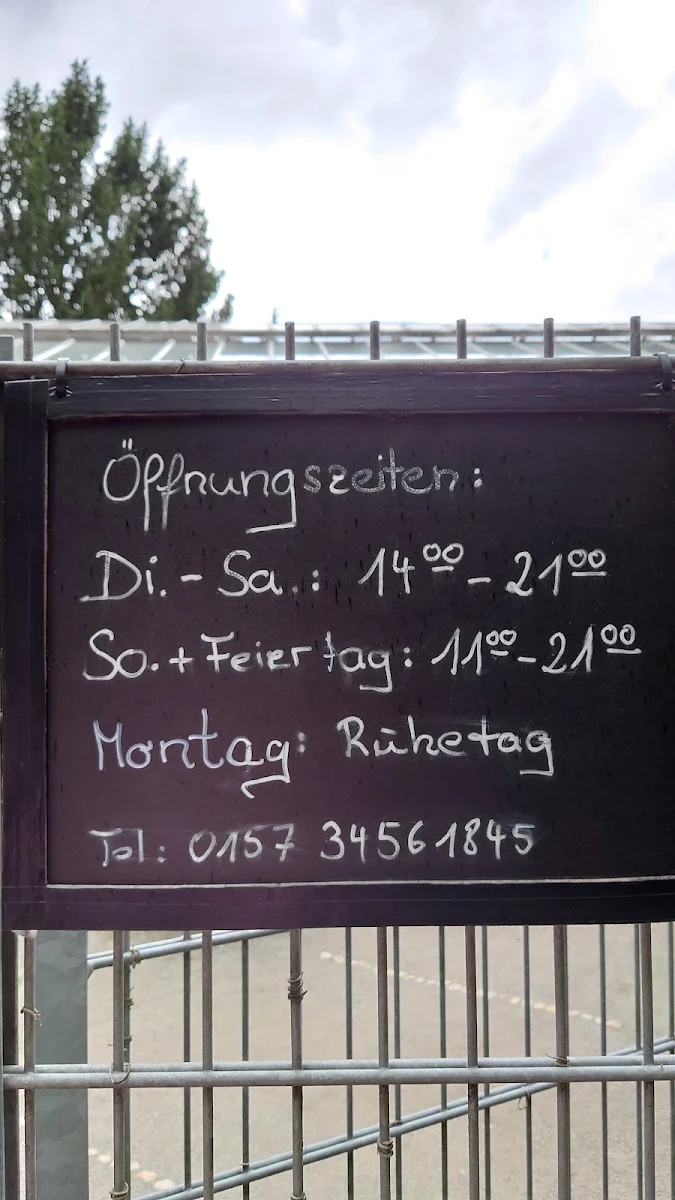 Öffnungszeiten:
Di.- Sa.: 14⁰⁰ - 21⁰⁰
So.+ Feiertag: 11⁰⁰ - 21⁰⁰
Montag: Ruhetag
Tel: 0157 34561845